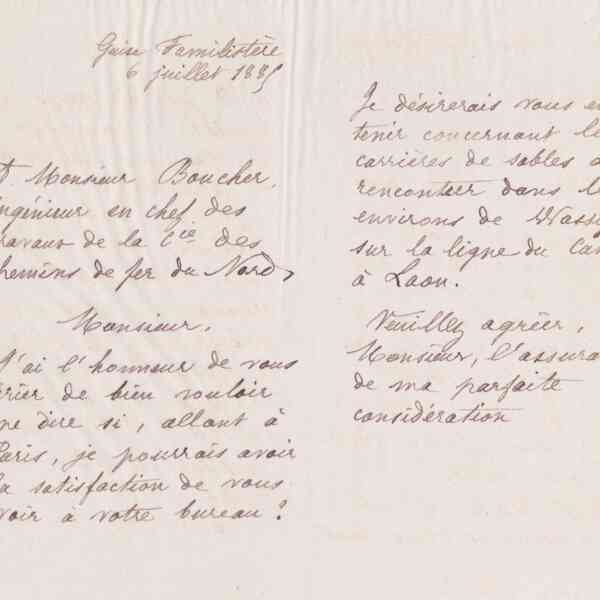 Guise Familistère
6 juillet 1885
A Monsieur Boucher,
ingénieur en chef des
travaux de la Cie des
chemins de fer du Nord,
Monsieur,
J'ai l'honneur de vous
prier de bien vouloir
me dire si, allant à
Paris, je pourrais avoir
la satisfaction de vous
voir à votre bureau ?
Je désirerais vous en
tenir concernant le
carrières de sables a
rencontrer dans l
environs de Wassi
sur la ligne du Ca
à Laon.
Veuillez agréer,
Monsieur, l'assura
de ma parfaite
considération